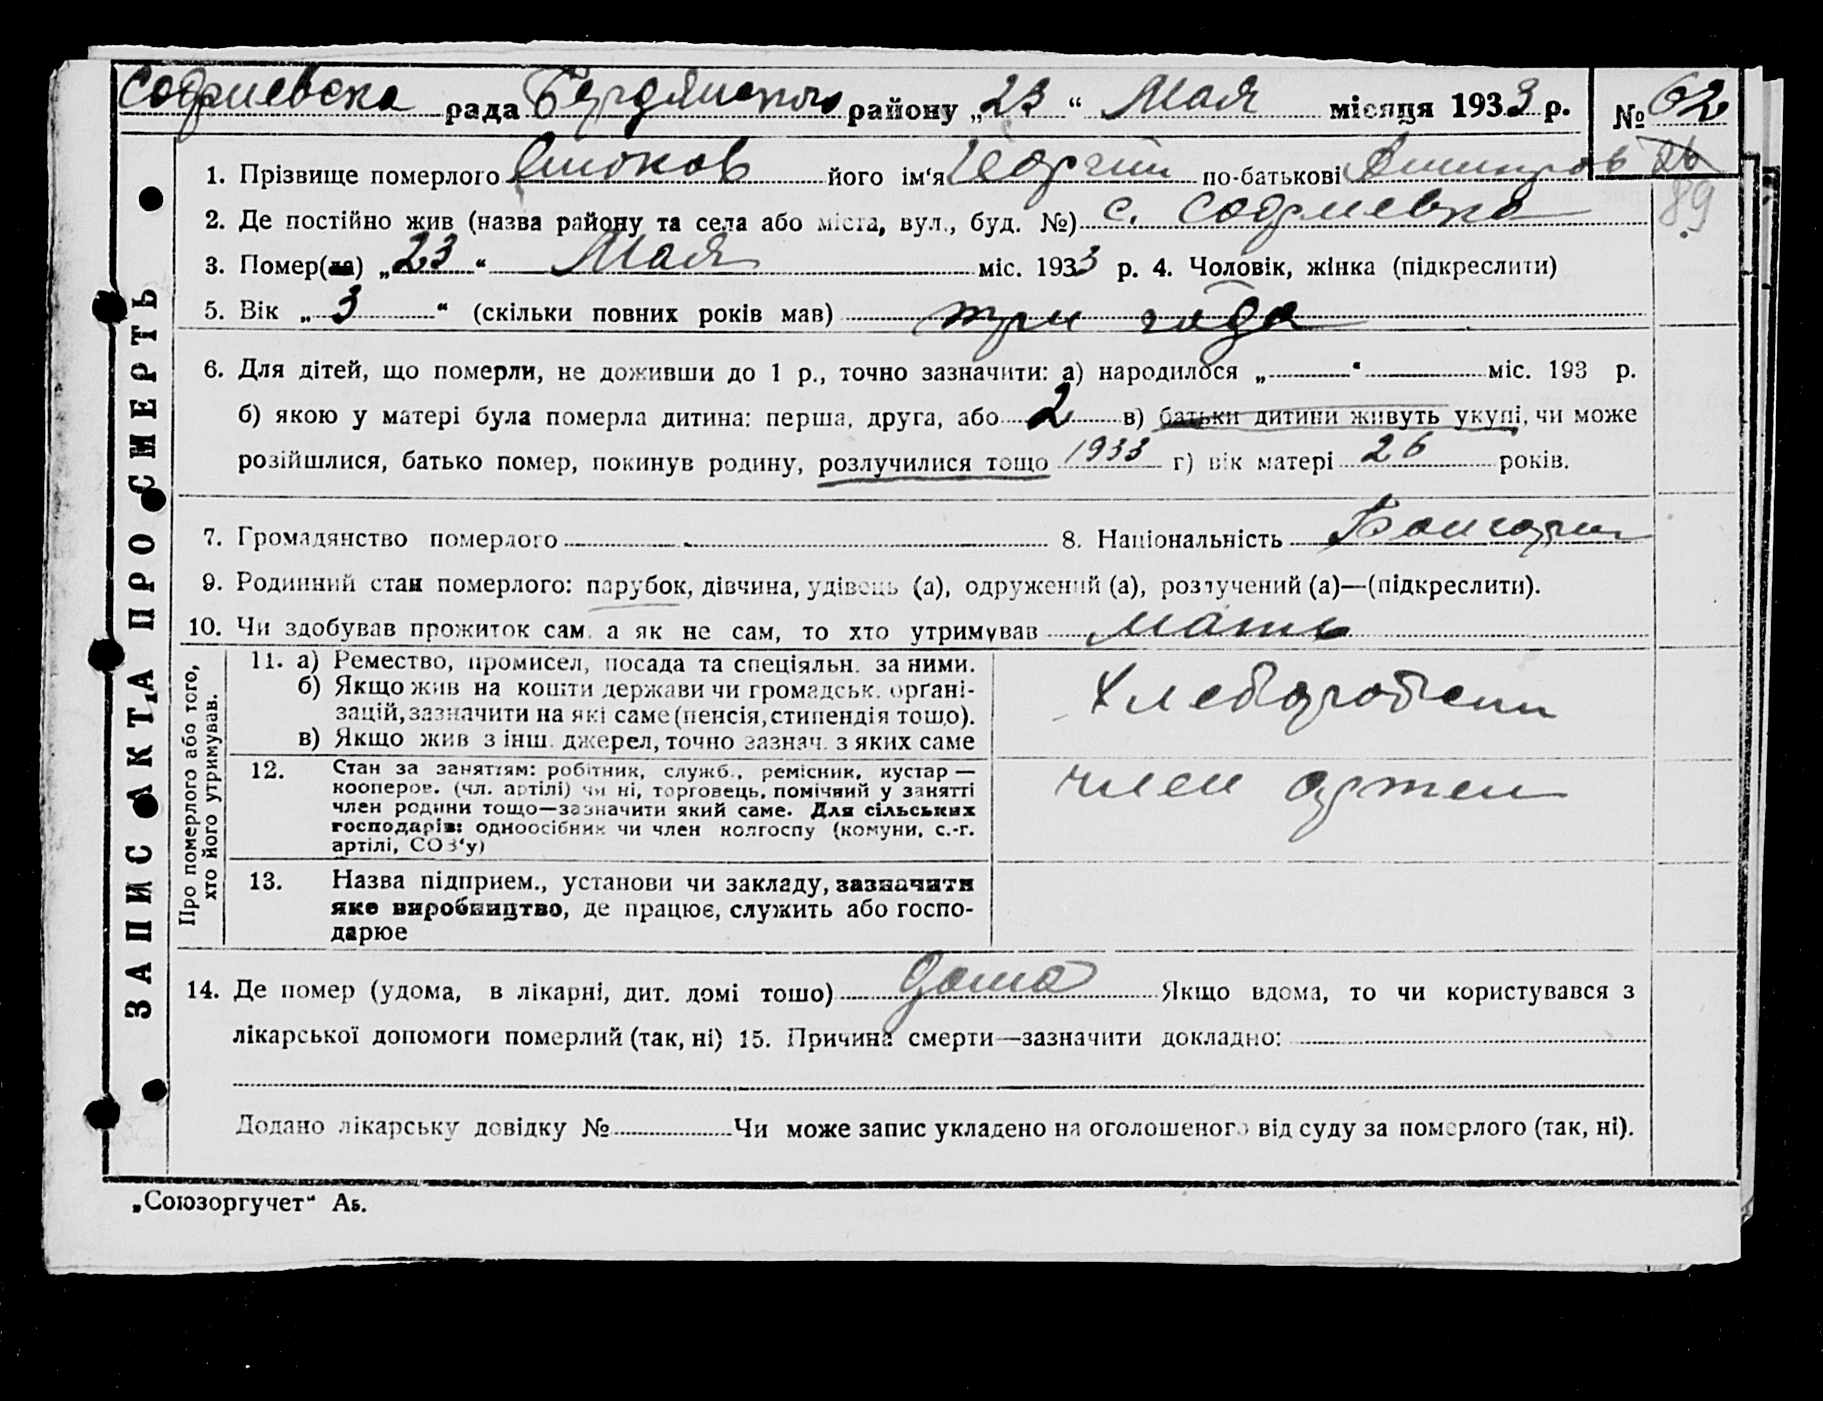 Софиевска рада Бердянского району „23“ Мая місяця 1933 р. № 62
26
89
1. Прізвище померлого його ім'я Георгий по-батькові Дмитров
2. Де постійно жив (назва району та села або міста, вул., буд. №) с. Софиевка
3. Помер(ла) „23“ Мая міс. 1933 р. 4. Чоловік, жінка (підкреслити)
5. Вік „3“ (скільки повних років мав) три года
6. Для дітей, що померли, не доживши до 1 р., точно зазначити: а) народилося „ “ міс. 193 р.
б) якою у матері була померла дитина: перша, друга, або 2 в) батьки дитини живуть укупі, чи може
розійшлися, батько помер, покинув родину, розлучилися тощо 1933 г) вік матері 26 років.
7. Громадянство померлого 8. Національність Болгарин
9. Родинний стан померлого: парубок, дівчина, удівець (а), одружений (а), розлучений (а)—(підкреслити).
10. Чи здобував прожиток сам, а як не сам, то хто утримував мать
ЗАПИС АКТА ПРО СМЕРТЬ
Про померлого або того, хто його утримував.
11. а) Ремество, промисел, посада та спеціяльн. за ними.
б) Якщо жив на кошти держави чи громадськ. органі-
зацій, зазначити на які саме (пенсія, стипендія тощо).
в) Якщо жив з інш. джерел, точно зазнач. з яких саме
Хлебороб
12. Стан за заняттям: робітник, служб., ремісник, кустар —
кооперов. (чл. артілі) чи ні, торговець, помічний у занятті
член родини тощо—зазначити який саме. Для сільських
господарів: одноосібник чи член колгоспу (комуни, с.-г.
артілі, СОЗ'у)
член артели
13. Назва підприєм., установи чи закладу, зазначити
яке виробництво, де працює, служить або госпо-
дарює
14. Де помер (удома, в лікарні, дит. домі тощо) дома Якщо вдома, то чи користувався з
лікарської допомоги померлий (так, ні) 15. Причина смерти—зазначити докладно:
Додано лікарську довідку № Чи може запис укладено на оголошеного від суду за померлого (так, ні).
„Союзоргучет“ А5.